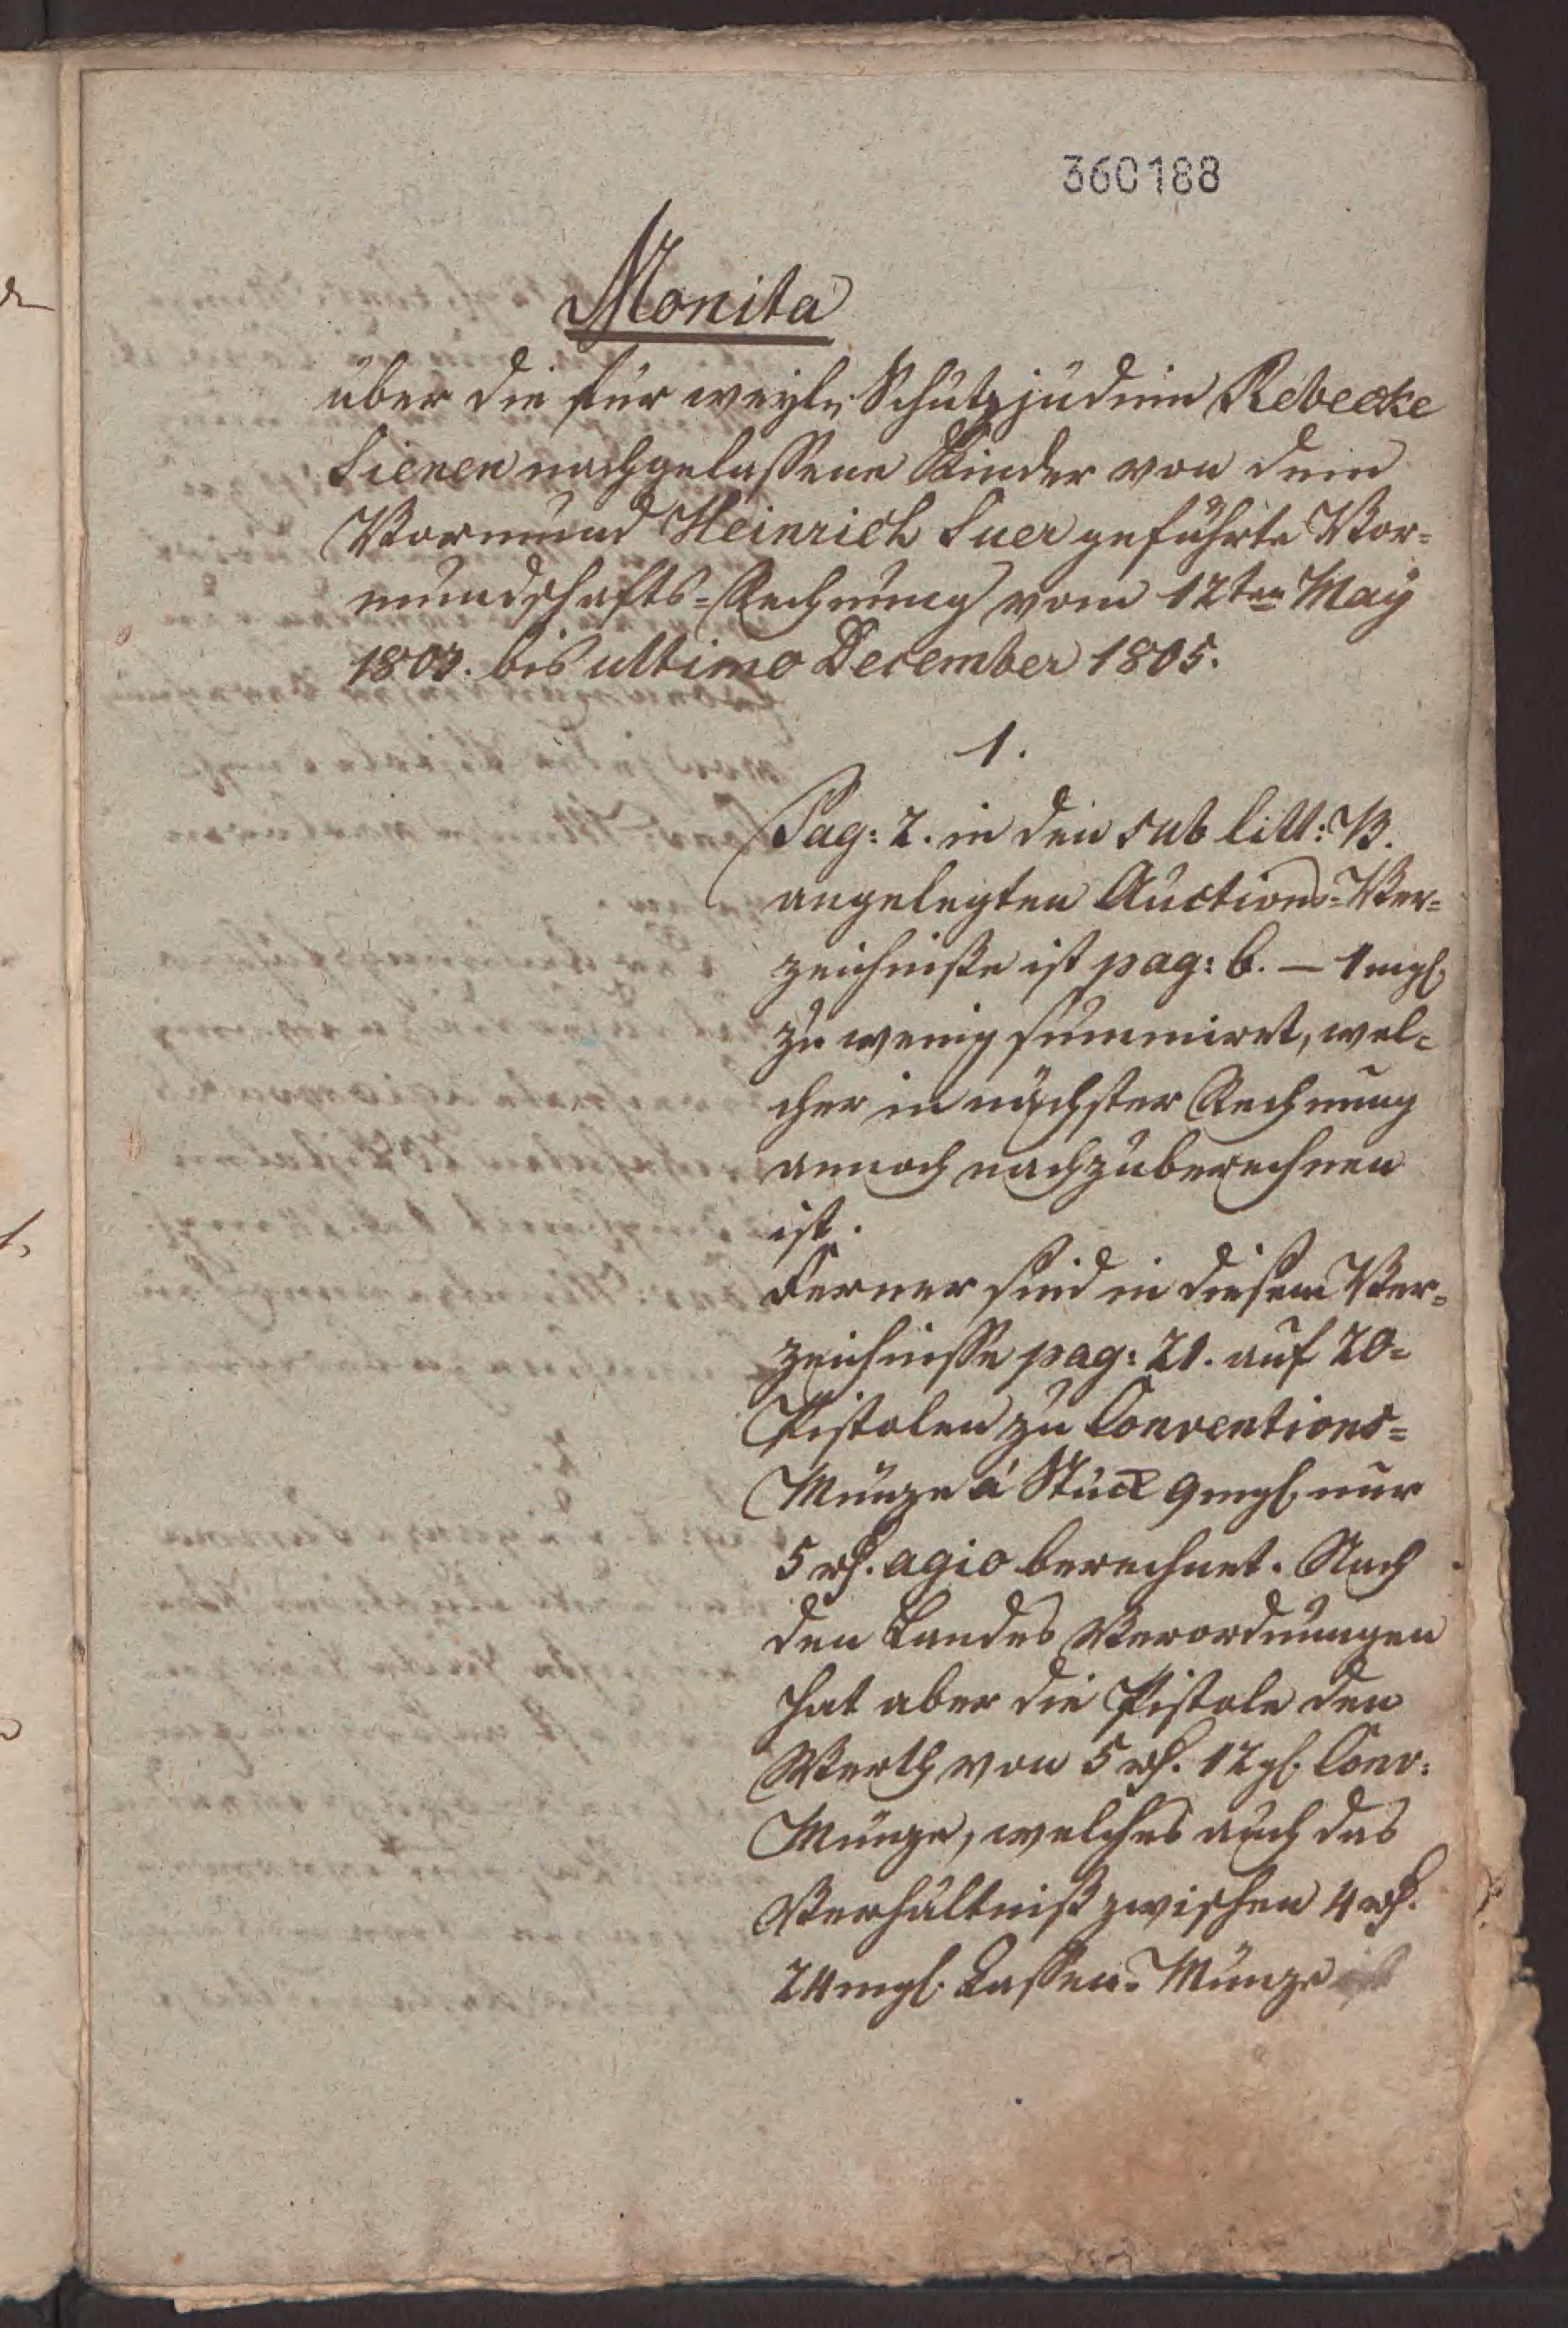 360188
Monita
über die für weyl: Schutzjüdin Rebecke
Sienen nachgelassene Kinder von dem
Vormund Heinrich Suer geführte Vor=
mundschafts=Rechnung vom 12ten May
1803. bis ultimo December 1805.
1.
Pag: 2. in den sub litt: B.
angelegten Auctions=Ver=
zeichniße ist pag: 6. — 1 mgl.
zu wenig summiret, wel=
cher in nächster Rechnung
annoch nachzuberechnen
ist.
Ferner sind in diesem Ver=
zeichnisse pag: 21. auf 20=
Pistolen zu Conventions=
Münze á Stück 9 mgl. nur
5 rh. agio berechnet. Nach
den Landes Verordnungen
hat aber die Pistole den
Werth von 5 rh. 12 gl. Conv:
Münze, welches auch das
Verhältniß zwischen 4 rh.
24 mgl. Cassen=Münze